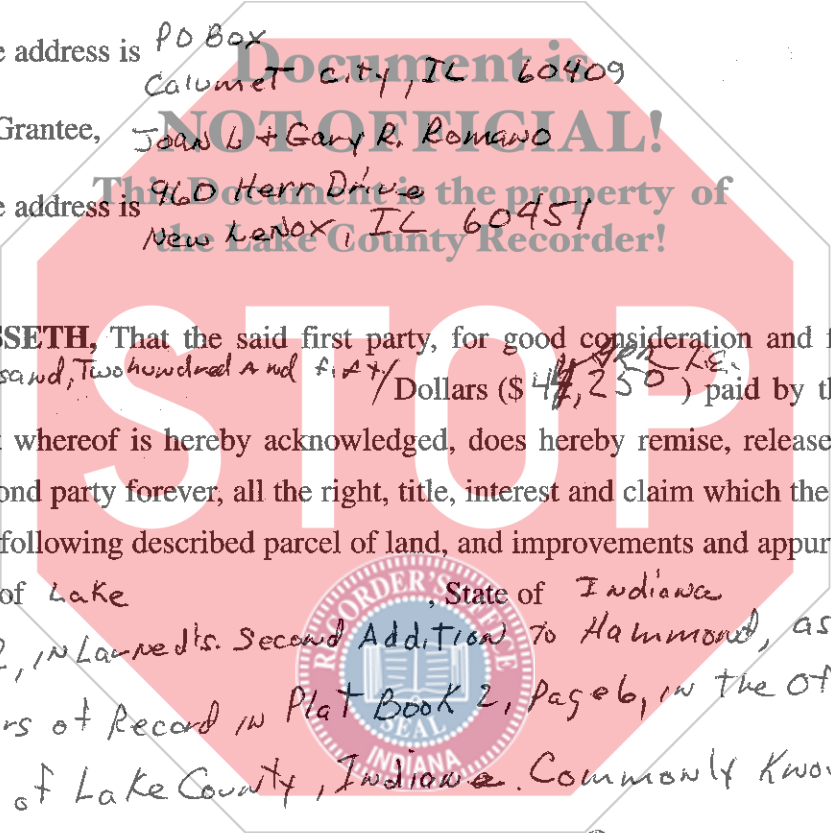 e address is PO Box
Calumet City, IL 60409
Document is
Grantee, Joan L + Gary R. Romano
NOT OFFICIAL!
e address is 960 Herr Drive
This Document is the property of
New Lenox, IL 60451
the Lake County Recorder!
STOP
SSETH, That the said first party, for good consideration and f
sand, Two hundred And fifty/Dollars ($ 4,250 ) paid by th
whereof is hereby acknowledged, does hereby remise, release
ond party forever, all the right, title, interest and claim which the
following described parcel of land, and improvements and appur
of Lake , State of Indiana
, IN Larned's. Second Addition To Hammond, as
rs of Record in Plat Book 2, Page 6, in the Of
of Lake County, Indiana. Commonly Know
RECORDER'S OFFICE
SEAL
INDIANA